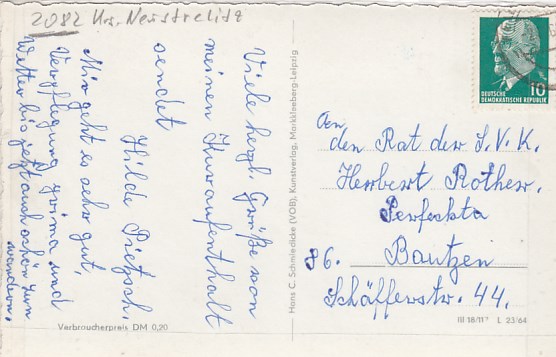 2082 Krs. Neustrelitz
Viele herzl. Grüße von
meinen Kuraufenthalt
sendet
Hilde Pietzsch.
Mir geht es sehr gut,
Verpflegung prima und
Wetter bis jetzt auch schön zum
wandern.
Verbraucherpreis DM 0,20
Hans C. Schmiedicke (VOB), Kunstverlag, Markkleeberg-Leipzig
10
DEUTSCHE
DEMOKRATISCHE REPUBLIK
An
den Rat der S.V.K.
Herbert Rother.
Perfekta
86. Bautzen
Schäfferstr. 44.
III 18/11 L 23/64